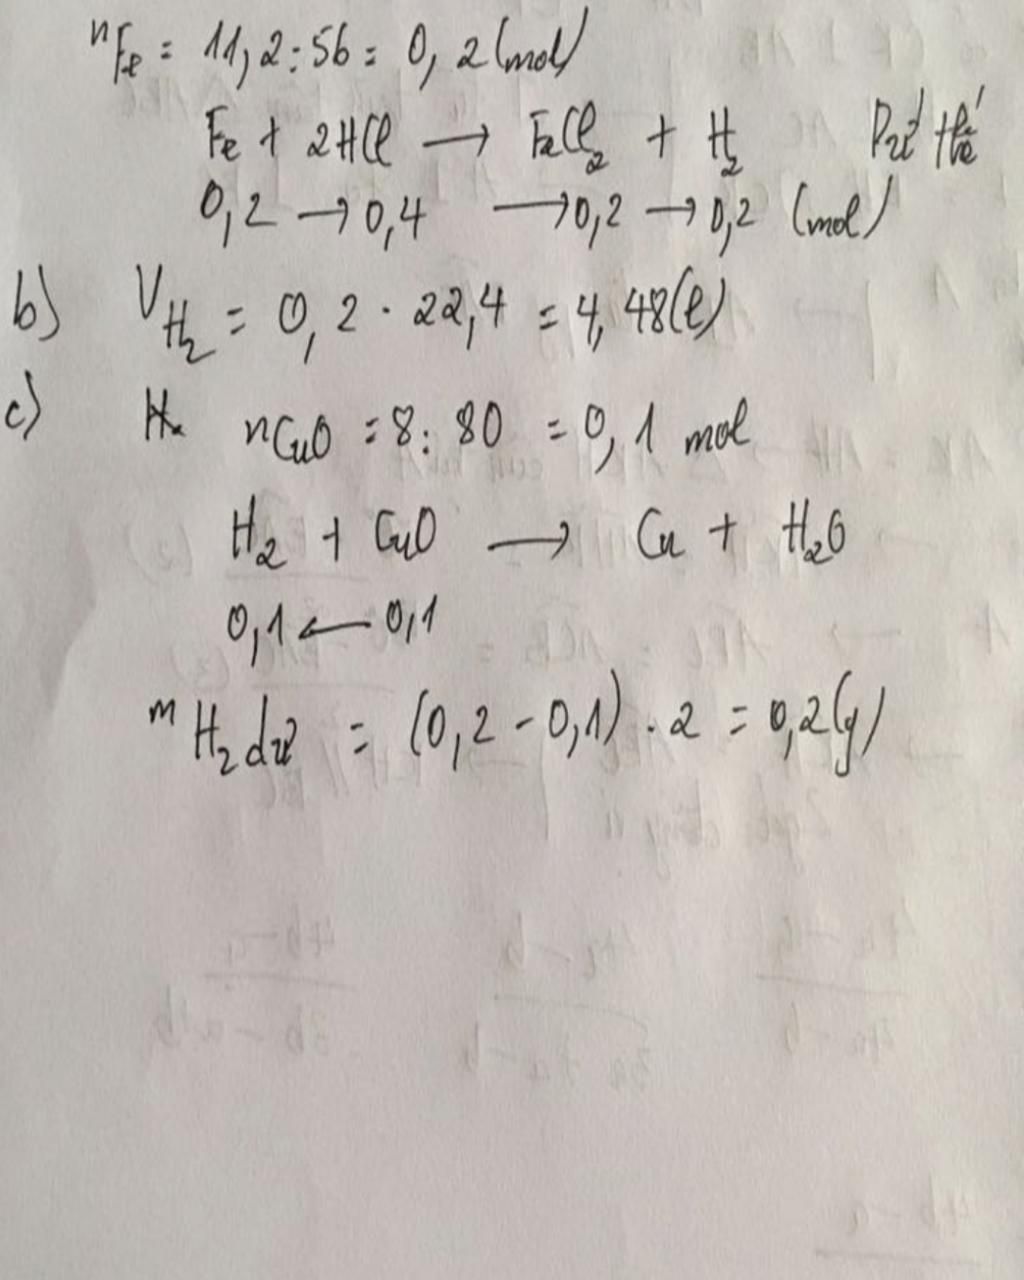 nFe = 11,2 : 56 = 0,2 (mol)
Fe + 2HCl → FeCl2 + H2 Pứ thế
0,2 → 0,4 → 0,2 → 0,2 (mol)
b) VH2 = 0,2 . 22,4 = 4,48 (l)
c) nCuO = 8 : 80 = 0,1 mol
H2 + CuO → Cu + H2O
0,1 ← 0,1
mH2 dư = (0,2 - 0,1) . 2 = 0,2 (g)